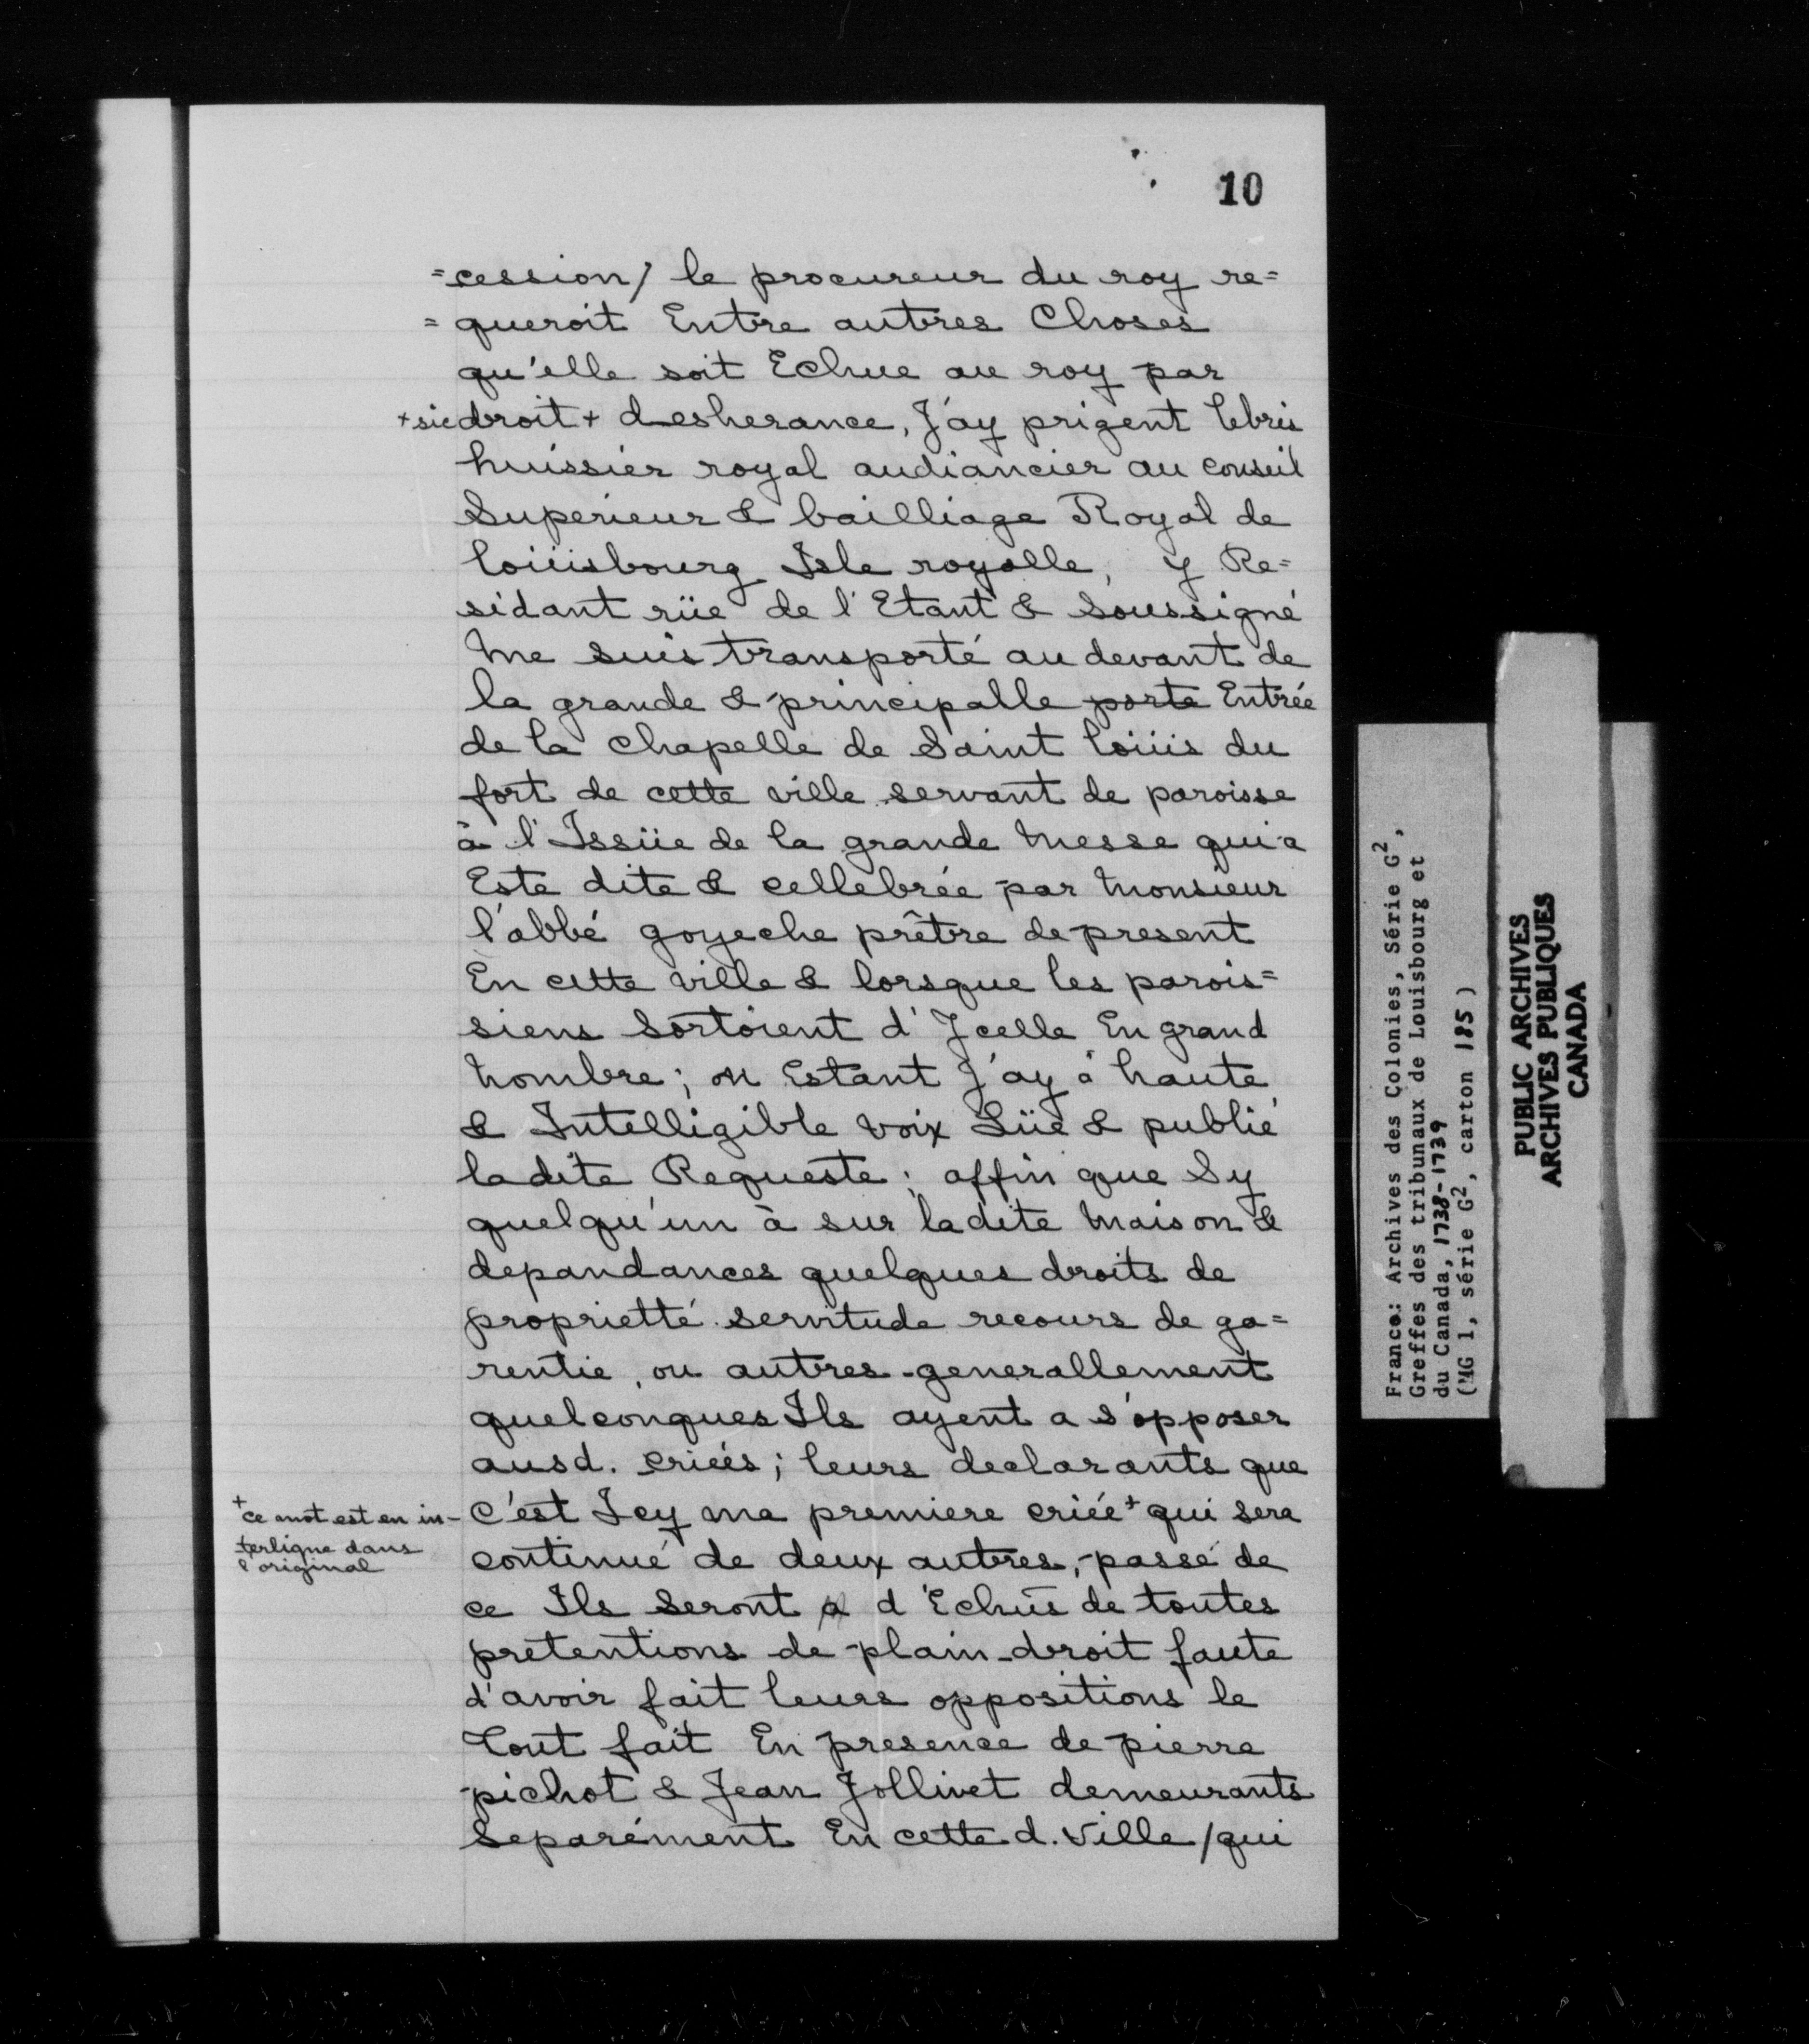 10
=cession/ le procureur du roy re=
=queroit Entre autres Choses
qu'elle soit Echue au roy par
+sic droit + desherance, J'ay prigent lebris
huissier royal audiancier au conseil
Superieur & bailliage Royal de
loüisbourg Isle royalle, y Re=
sidant rüe de l'Etant & soussigné
me suis transporté au devant de
la grande & principalle porte Entrée
de la chapelle de Saint loüis du
fort de cette ville servant de paroisse
à l'Issüe de la grande messe qui a
Este dite & cellebrée par monsieur
l'abbé goyeche prêtre de present
En cette ville & lorsque les parois=
siens sortoient d'Jcelle En grand
nombre; ou Estant J'ay à haute
& Intelligible voix Lüe & publié
ladite Requeste; affin que Sy
quelqu'un à sur ladite maison &
depandances quelques droits de
proprietté servitude recours de ga=
rentie, ou autres generallement
quelconques Ils ayent a s'opposer
ausd. criées; leurs declarants que
+ ce mot est en in-
terligne dans
l'original
C'est Icy ma premiere criée + qui sera
continué de deux autres, passé de
ce Ils seront d'Echûs de toutes
pretentions de plain droit faute
d'avoir fait leurs oppositions le
Tout fait En presence de pierre
pichot & Jean Jollivet demeurants
Separément En cette d. ville /qui
France: Archives des Colonies, Série G2,
Greffes des tribunaux de Louisbourg et
du Canada, 1738-1739
(MG 1, série G2, carton 185)
PUBLIC ARCHIVES
ARCHIVES PUBLIQUES
CANADA